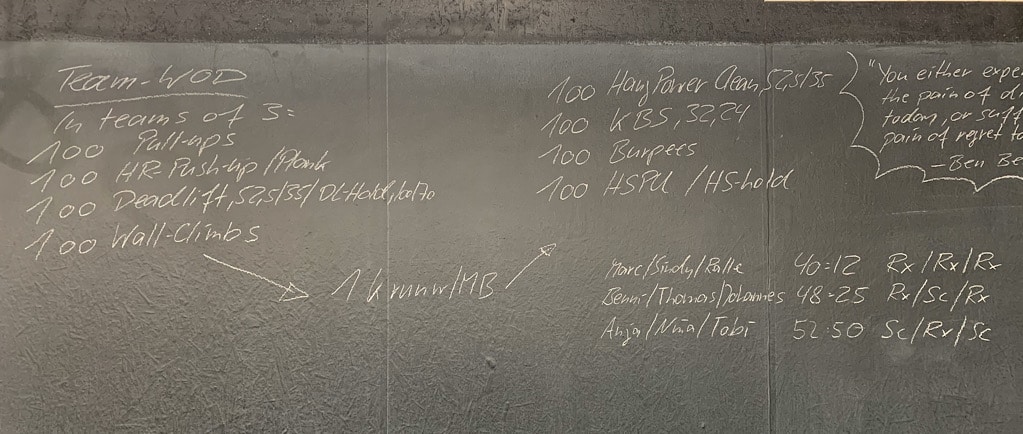 Team-WOD
In teams of 3:
100 Pull-ups
100 HR-Push-up/Plank
100 Deadlift, 52,5/35/DL-Hold, 100/70
100 Wall-Climbs
1 k run w/MB
100 Hang Power Clean, 52,5/35
100 KBS, 32,24
100 Burpees
100 HSPU / HS-hold
"You either expe
the pain of di
today, or suff
pain of regret to
- Ben Be
Marc/Sindy/Ralle 40:12 Rx/Rx/Rx
Benni/Thomas/Johannes 48:25 Rx/Sc/Rx
Anja/Nina/Tobi 52:50 Sc/Rx/Sc